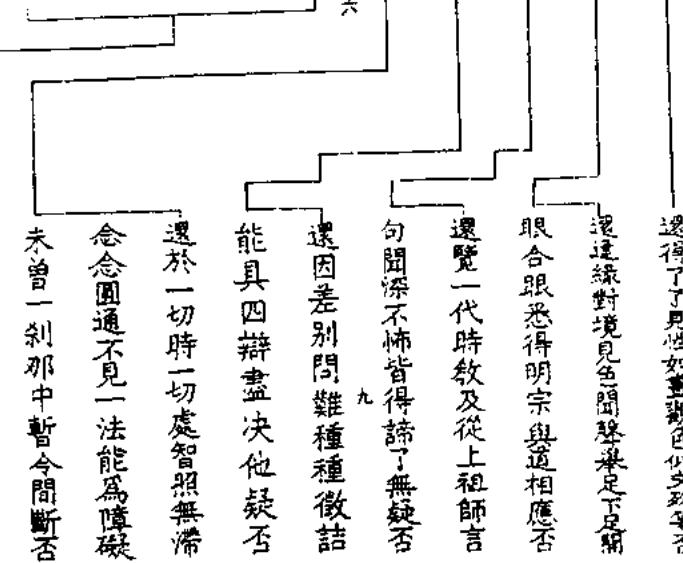 六
還得了了見性如晝觀色似文殊等否
還逢緣對境見色聞聲舉足下足開
眼合眼悉得明宗與道相應否
還覽一代時教及從上祖師言
句聞深不怖皆得諦了無疑否
九
還因差別問難種種徵詰
能具四辯盡決他疑否
還於一切時一切處智照無滯
念念圓通不見一法能爲障礙
未曾一剎那中暫令間斷否